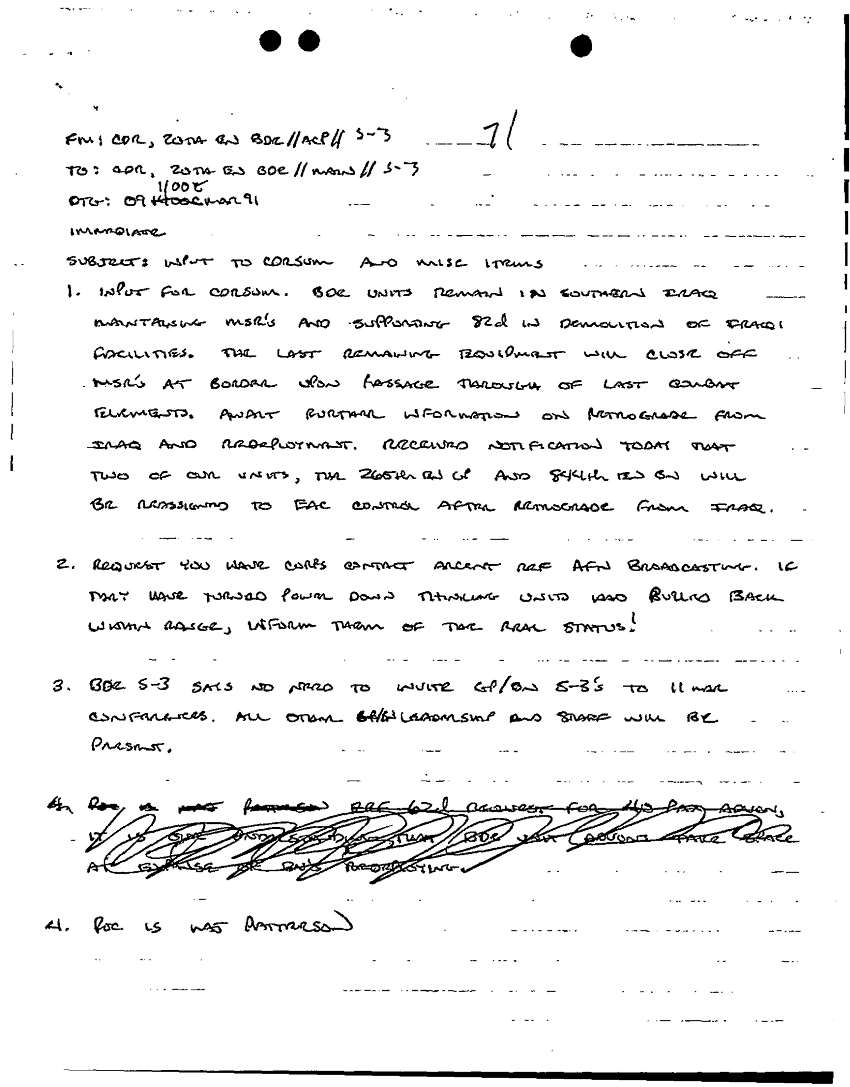 FM: CDR, 20TH EN BDE//ACP// S-3
71
TO: CDR, 20TH EN BDE//MAIN// S-3
1100Z
DTG: 09 MAR 91
IMMEDIATE
SUBJECT: INPUT TO CORSUM AND MISC ITEMS
1. INPUT FOR CORSUM. BDE UNITS REMAIN IN SOUTHERN IRAQ
MAINTAINING MSR'S AND SUPPORTING 82d IN DEMOLITION OF IRAQI
FACILITIES. THE LAST REMAINING EQUIPMENT WILL CLOSE OFF
MSR'S AT BORDER UPON PASSAGE THROUGH OF LAST COMBAT
ELEMENTS. AWAIT FURTHER INFORMATION ON RETROGRADE FROM
IRAQ AND REDEPLOYMENT. RECEIVED NOTIFICATION TODAY THAT
TWO OF OUR UNITS, THE 265th EN GP AND 844th EN BN WILL
BE REASSIGNED TO EAC CONTROL AFTER RETROGRADE FROM IRAQ.
2. REQUEST YOU HAVE CORPS CONTACT ARCENT REF AFN BROADCASTING. IF
THEY HAVE TURNED POWER DOWN THINKING UNITS HAD PULLED BACK
WITHIN RANGE, INFORM THEM OF THE REAL STATUS!
3. BDE S-3 SAYS NO NEED TO INVITE GP/BN S-3'S TO 11 MAR
CONFERENCES. ALL OTHER GP/BN LEADERSHIP AND STAFF WILL BE
PRESENT.
4. POC IS MAJ PATTERSON REF 62d REQUEST FOR 40 PAX ADVON,
IT IS OUR UNDERSTANDING THAT BDE ADVON TAKE SPACE
AT EXPENSE OF BN'S REQUESTING.
4. POC IS MAJ PATTERSON